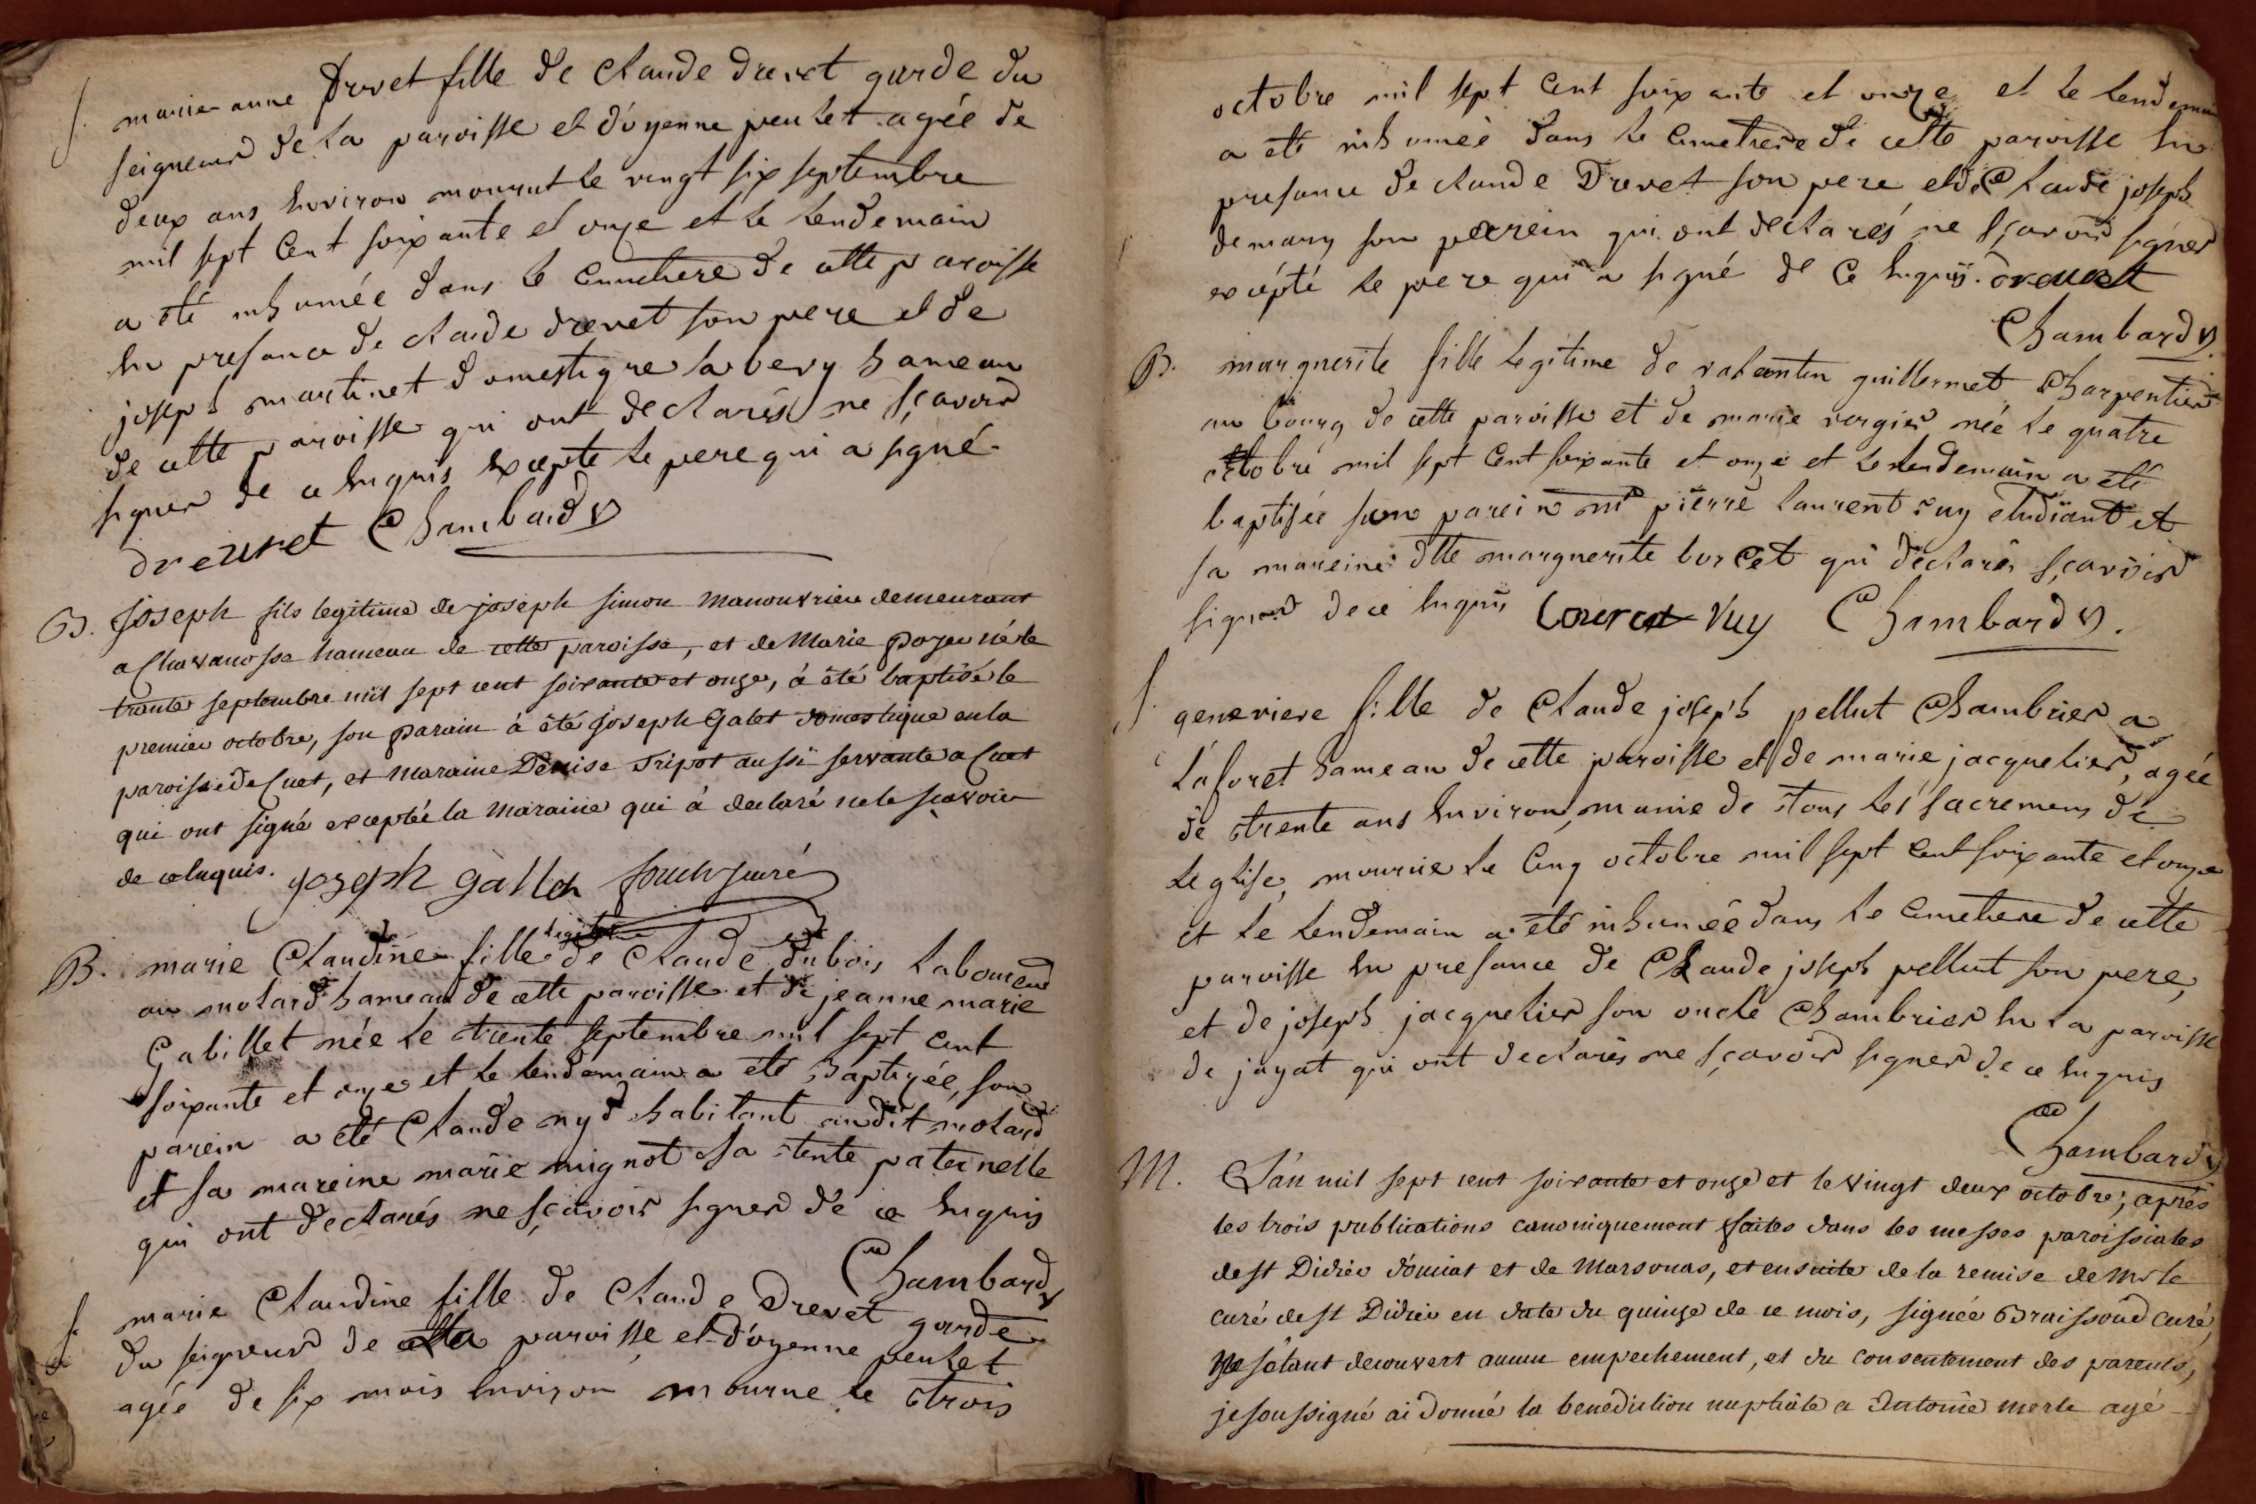 S. marie anne Drevet fille de claude drevet garde du
seigneur de la paroisse et d'oyenne peulet agée de
deux ans environ mourut le vingt six septembre
mil sept Cent soixante et onze et le lendemain
a été inhumée dans le cimetiere de cette paroisse
en presance de claude drevet son pere et de
joseph martinet domestique a bevy hameau
de cette paroisse qui ont declarés ne sçavoir
signer de ce enquis excepte le pere qui a signé
dreuvet Chambard v
B. Joseph fils legitime de joseph simon manouvrier demeurant
a Chavanosse hameau de cette paroisse, et de Marie pozeu né le
trente septembre mil sept cent soixante et onze, à été baptisé le
premier octobre, son parain à été joseph Galet domestique en la
paroisse de Cuet, et maraine Denise Tripot aussi servante a Cuet
qui ont signé exceptée la maraine qui à declaré ne le sçavoir
de ce enquis. joseph gallet curé
B. marie Claudine fille legitime de Claude dubois laboureur
au molard hameau de cette paroisse et de jeanne marie
Gabillet née le trente septembre mil sept cent
soixante et onze et le lendemain a été Baptizée, son
parein a été Claude nyd habitant audit molard
et sa mareine marie mignot sa tente paternelle
qui ont declarés ne sçavoir signer de ce enquis
Chambard v
S. marie Claudine fille de Claude Drevet garde
du seigneur de la paroisse et d'oyenne peulet
agée de six mois environ mourue le trois
octobre mil sept Cent soixante et onze et le lendemain
a été inhumée dans le cimetiere de cette paroisse en
presance de claude Drevet son pere et de Claude joseph
demary son parrein qui ont declarés ne sçavoir signer
excépté le pere qui a signé de ce enquis. dreuvet
Chambard v.
B. marguerite fille legitime de valantin guillermet Charpentier
au bourg de cette paroisse et de marie vergier née le quatre
octobre mil sept Cent soixante et onze et le lendemain a été
baptisée son parein mr pierre laurent vuy etudiant et
sa mareine dlle marguerite borcet qui declarés sçavoir
signer de ce enquis Laurent Vuy Chambard v.
S. genevieve fille de Claude joseph pellut Chambrier a
laforet hameau de cette paroisse et de marie jacquelier, agée
de trente ans environ, munie de tous les sacremens de
leglise, mourue le Cinq octobre mil sept cent soixante et onze
et le lendemain a été inhumée dans le cimetiere de cette
paroisse en presance de Claude joseph pellut son pere,
et de joseph jacquelier son oncle Chambrier en la paroisse
de jayat qui ont declarés ne sçavoir signer de ce enquis
Chambard v
M. L'an mil sept cent soixante et onze et le vingt deux octobre; aprés
les trois publications canoniquement faites dans les messes paroissiales
de st Didier d'oussiat et de Marsonas, et ensuite de la remise de Mr le
curé de st Didier en date du quinze de ce mois, signée Braissoud curé,
Ne s'étant decouvert aucun empechement, et du consentement des parents,
je soussigné ai donné la benediction nuptiale a Antoine merle agé